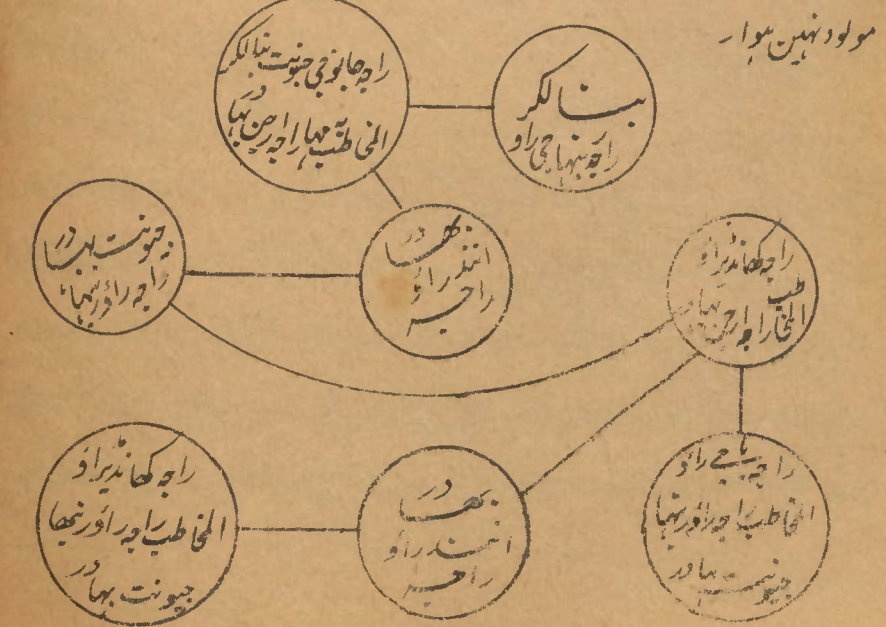 مولود نہین ہوا۔
بنالکر
راجہ بنہاجی راو
راجہ جانوجی جنونت بنالکر
المخاطب بہ مہاراجہ راجن بہادر
بھادر
انند راؤ
راجہ
جیونت بہادر
راجہ راؤ رنبہا
راجہ کھانڈیراؤ
المخاطب راجہ ارجن بہادر
راجہ باجے راؤ
المخاطب راجہ راؤ رنبہا
جیونت بہادر
بھادر
انند راؤ
راجہ
راجہ کھانڈیراؤ
المخاطب راجہ راؤ رنبھا
جیونت بہادر